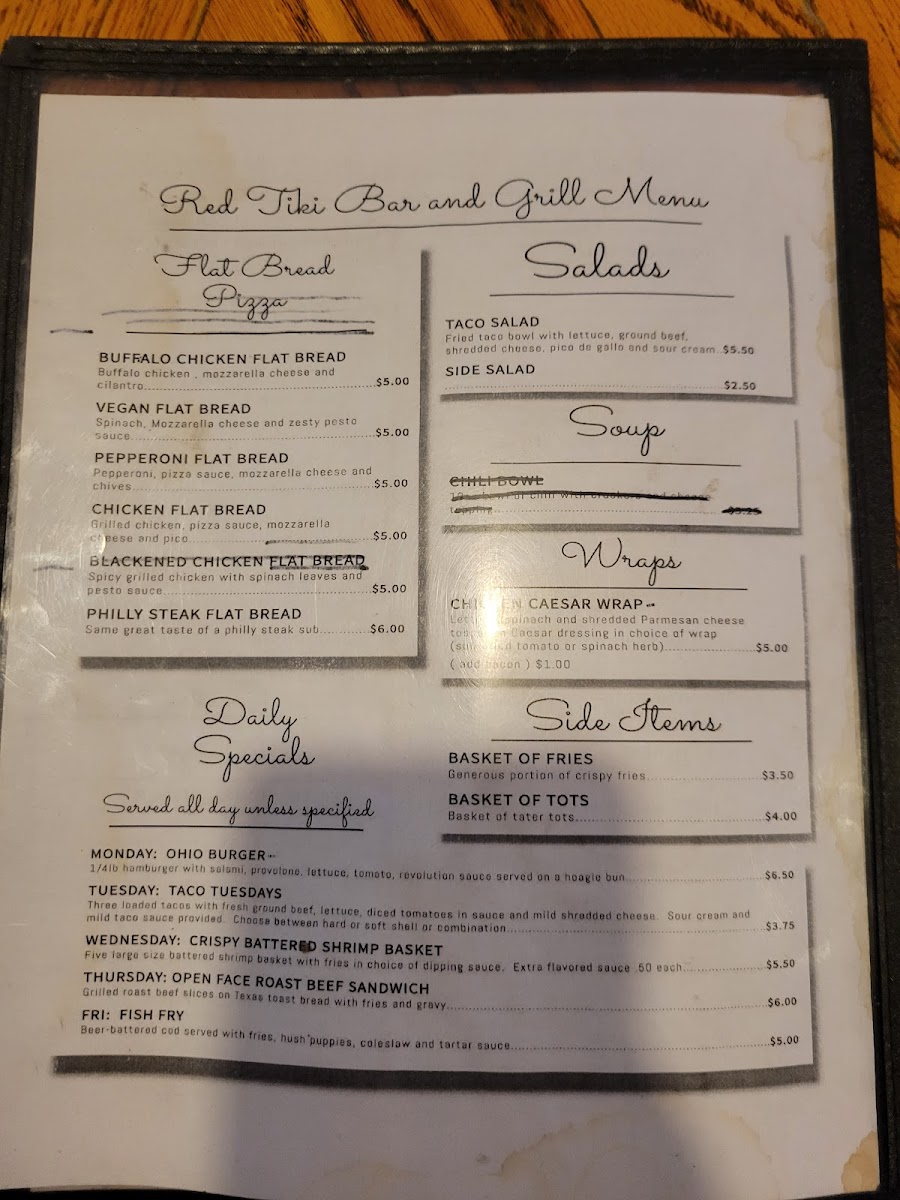 Red Tiki Bar and Grill Menu
Flat Bread
Pizza
BUFFALO CHICKEN FLAT BREAD
Buffalo chicken , mozzarella cheese and
cilantro....$5.00
VEGAN FLAT BREAD
Spinach, Mozzarella cheese and zesty pesto
sauce....$5.00
PEPPERONI FLAT BREAD
Pepperoni, pizza sauce, mozzarella cheese and
chives....$5.00
CHICKEN FLAT BREAD
Grilled chicken, pizza sauce, mozzarella
cheese and pico....$5.00
BLACKENED CHICKEN FLAT BREAD
Spicy grilled chicken with spinach leaves and
pesto sauce....$5.00
PHILLY STEAK FLAT BREAD
Same great taste of a philly steak sub....$6.00
Salads
TACO SALAD
Fried taco bowl with lettuce, ground beef,
shredded cheese, pico de gallo and sour cream..$5.50
SIDE SALAD
....$2.50
Soup
CHILI BOWL
bowl of chili with crackers and cheese
topping $3.25
Wraps
CHICKEN CAESAR WRAP
Lettuce, spinach and shredded Parmesan cheese
Caesar dressing in choice of wrap
tomato or spinach herb)....$5.00
( add bacon ) $1.00
Side Items
BASKET OF FRIES
Generous portion of crispy fries....$3.50
BASKET OF TOTS
Basket of tater tots....$4.00
Daily
Specials
Served all day unless specified
MONDAY: OHIO BURGER
1/4lb hamburger with salami, provolone, lettuce, tomato, revolution sauce served on a hoagie bun....$6.50
TUESDAY: TACO TUESDAYS
Three loaded tacos with fresh ground beef, lettuce, diced tomatoes in sauce and mild shredded cheese. Sour cream and
mild taco sauce provided. Choose between hard or soft shell or combination....$3.75
WEDNESDAY: CRISPY BATTERED SHRIMP BASKET
Five large size battered shrimp basket with fries in choice of dipping sauce. Extra flavored sauce .50 each....$5.50
THURSDAY: OPEN FACE ROAST BEEF SANDWICH
Grilled roast beef slices on Texas toast bread with fries and gravy....$6.00
FRI: FISH FRY
Beer-battered cod served with fries, hush puppies, coleslaw and tartar sauce....$5.00